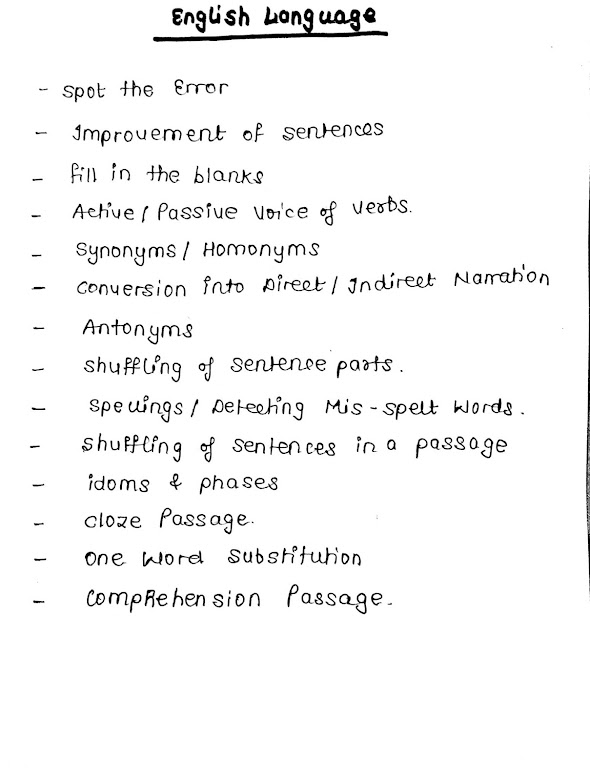 English Language
- Spot the Error
- Improvement of sentences
- fill in the blanks
- Active / Passive Voice of Verbs.
- Synonyms / Homonyms
- Conversion into Direct / Indirect Narration
- Antonyms
- Shuffling of Sentence parts.
- Spellings / Detecting Mis-spelt Words.
- Shuffling of Sentences in a passage
- idoms & phases
- Cloze Passage.
- One Word Substitution
- Comprehension Passage.